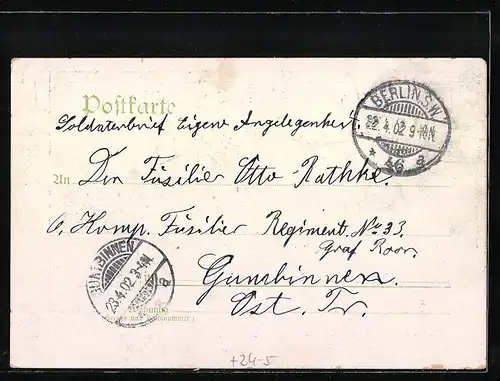 Postkarte
BERLIN S.W.
22.4.02 9-10N.
* 46 a
Soldatenbrief Eigene Angelegenheit.
An Den Füsilier Otto Rathke.
6. Komp. Füsilier Regiment. No 33.
Graf Roon.
Gumbinnen
Ost. Pr.
GUMBINNEN
23.4.02 3-4N.
a
Wohnung
(Straße und Hausnummer.)
+24-5